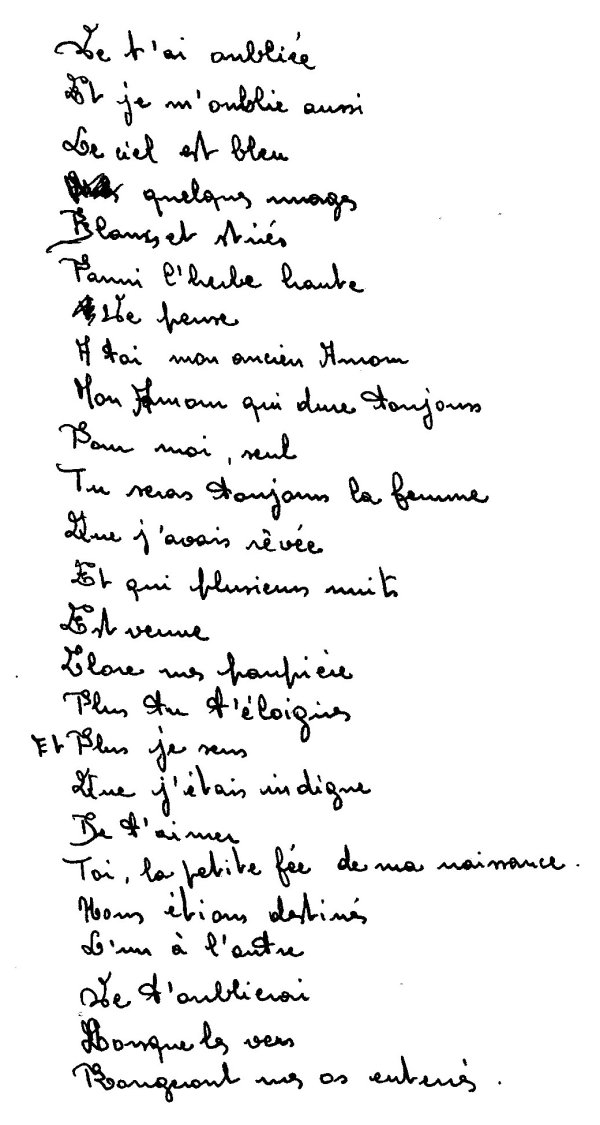 Je t'ai oubliée
Et je m'oublie aussi
Le ciel est bleu
quelques nuages
Blancs et striés
Parmi l'herbe haute
Je pense
A toi mon ancien Amour
Mon Amour qui dure toujours
Pour moi, seul
Tu seras toujours la femme
Que j'avais rêvée
Et qui plusieurs nuits
Est venue
Clore mes paupière
Plus tu t'éloignes
Et Plus je sens
Que j'étais indigne
De t'aimer
Toi, la petite fée de ma naissance.
Nous étions destinés
L'un à l'autre
Je t'oublierai
Lorsque les vers
Rongeront mes os enterrés.